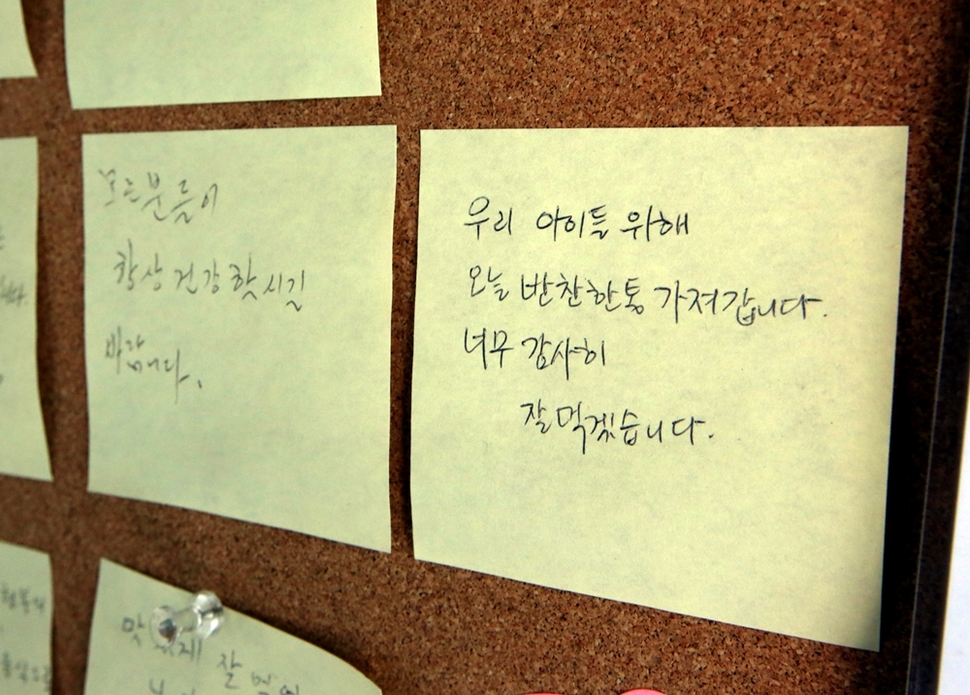 모든분들이
항상 건강핫시길
바랍니다.
우리 아이들 위해
오늘 반찬한통 가져갑니다.
너무 감사히
잘먹겠습니다.
맛있게
잘